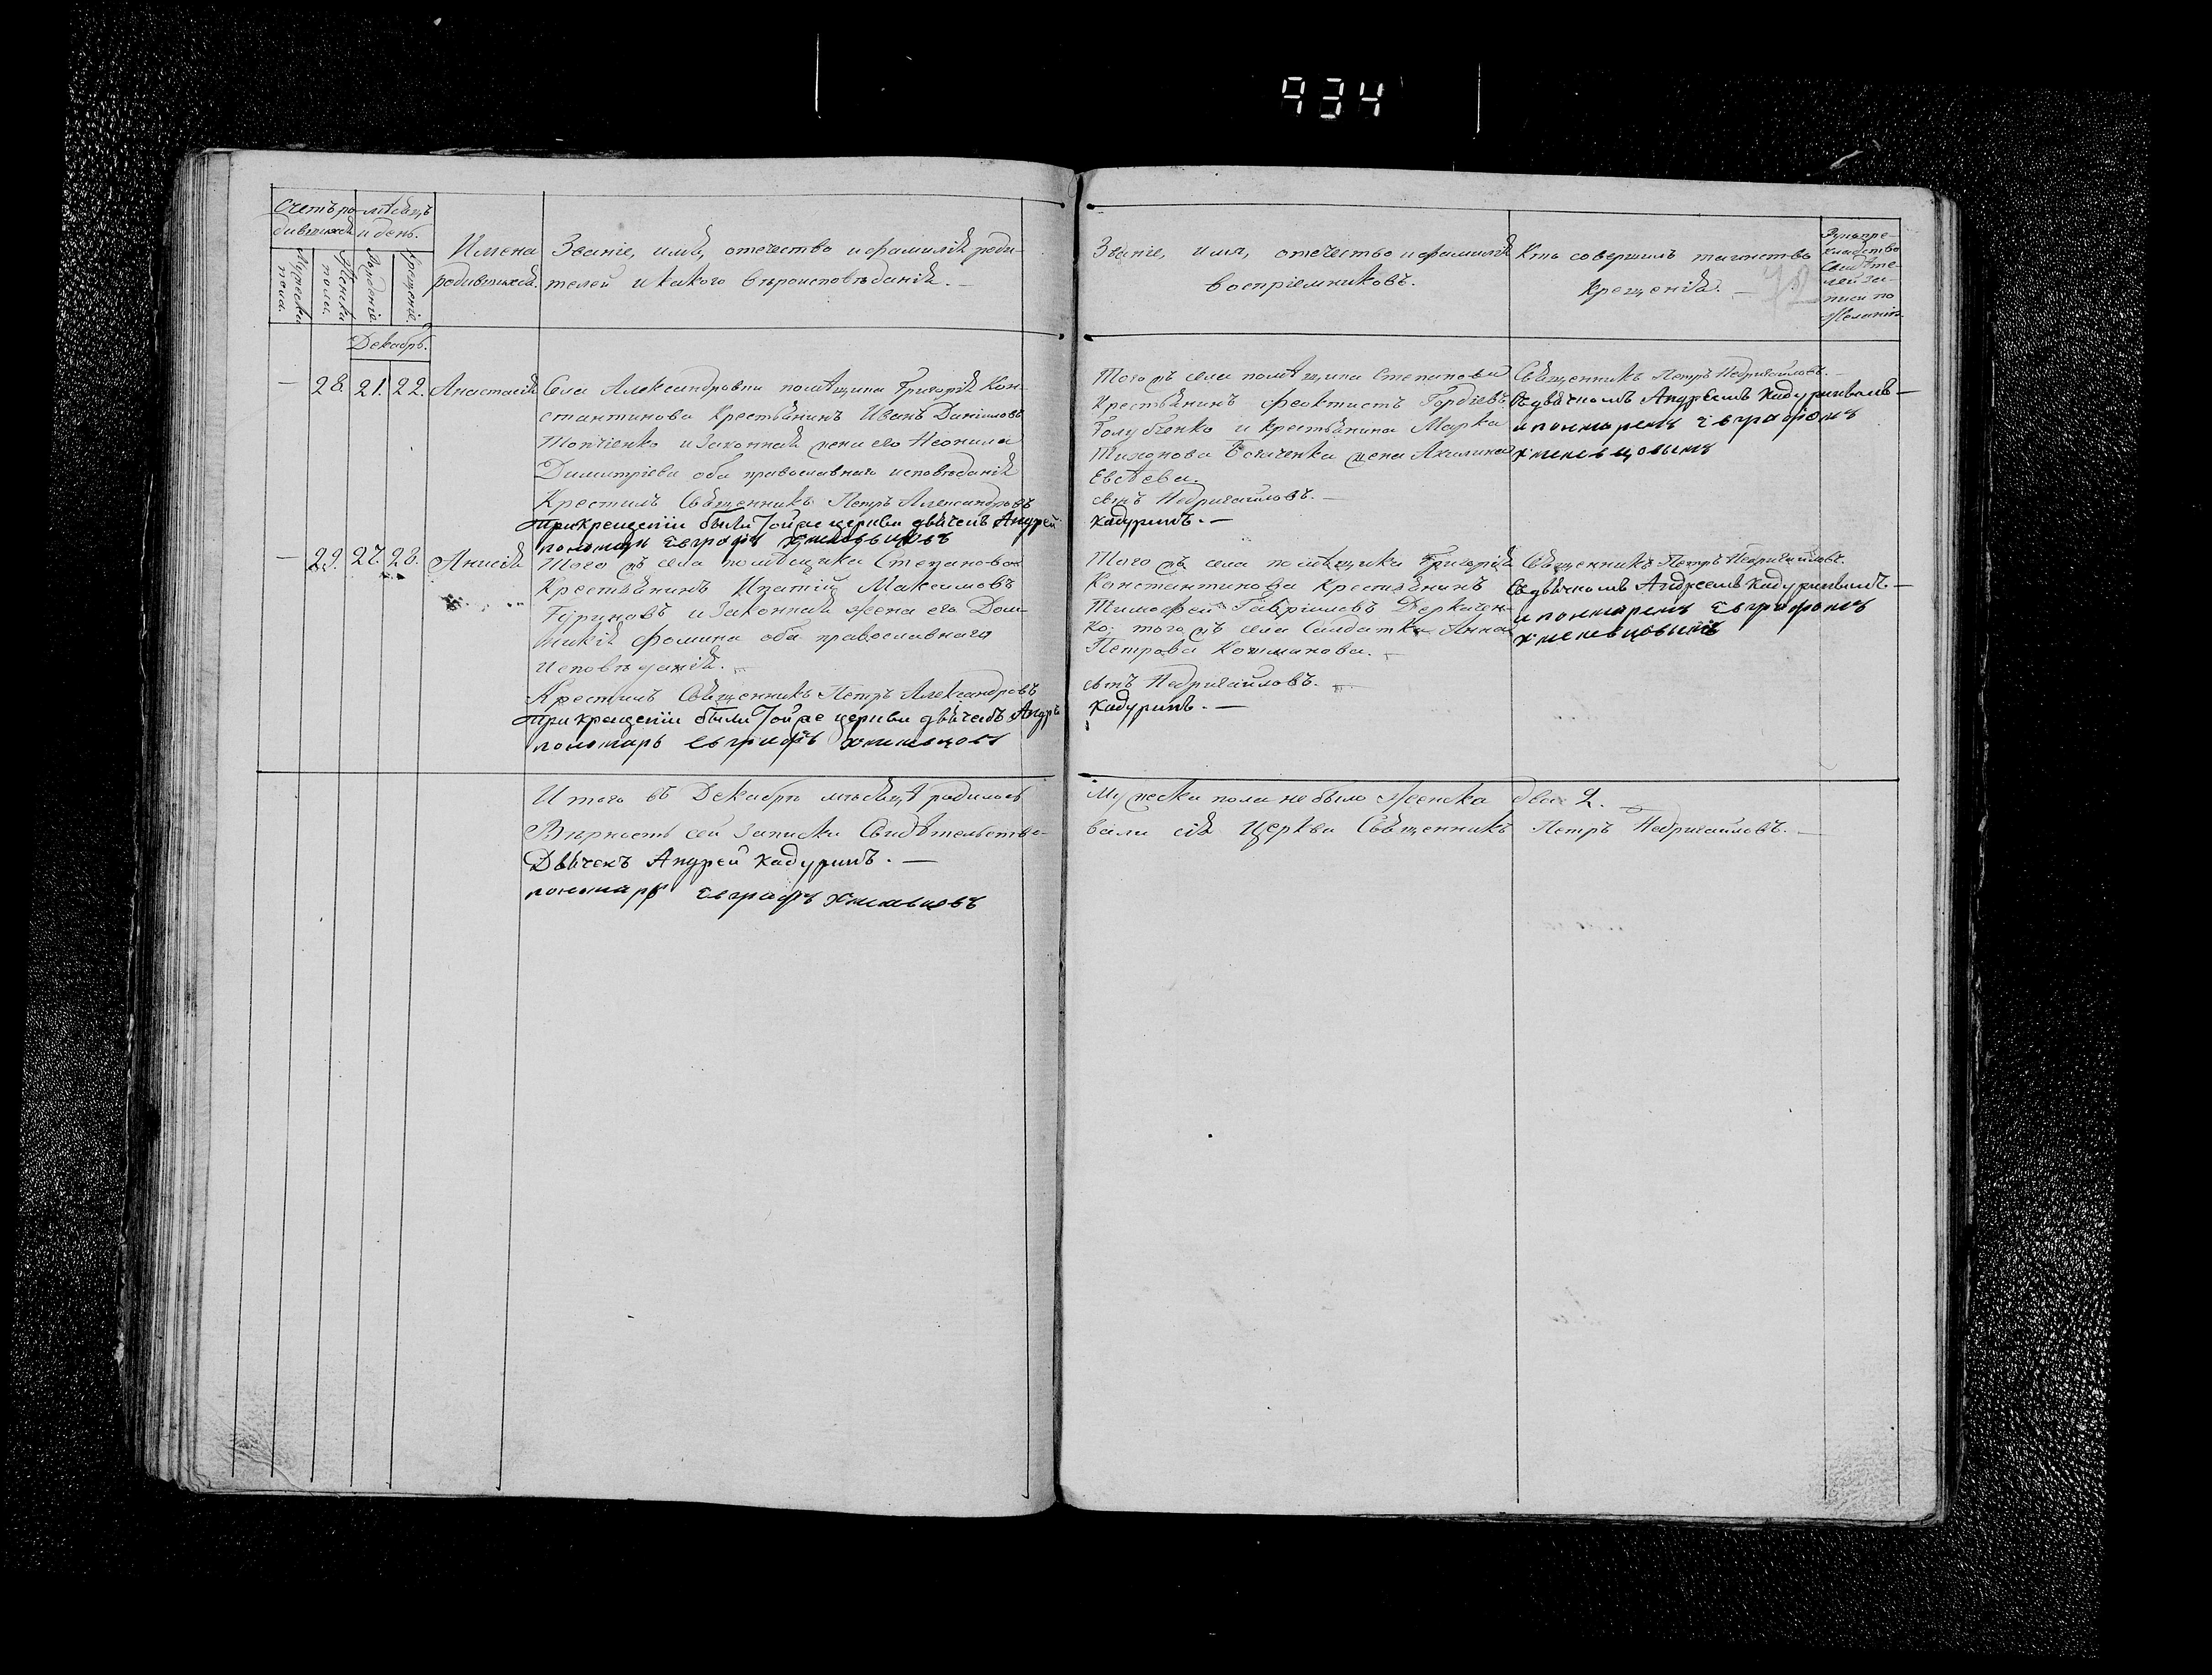 934
Счетъ ро- мѣсяцъ
дившихся и день.
Мужеска пола.
Женска пола.
Рожденіе.
Крещеніе.
Имена
родившихся.
Званіе, имя, отечество и фамилія роди-
телей и какого вѣроисповѣданія.
Званіе, имя, отечество и фамилія
воспріемниковъ.
Кто совершилъ таинство
Крещенія.
Рукопри-
кладство
свидѣте-
лей за-
писи по
желанію.
Декабрь.
— 28. 21. 22. Анастасія Села Александровки помѣщика Григорія Кон-
стантинова Крестьянинъ Иванъ Даніиловъ
Топчіенко и законная жена его Неонила
Димитріева оба православнаго исповѣданія
Крестилъ Священникъ Петръ Александровъ
при крещеніи были Той же церкви дьячекъ Андрей
пономарь Евграфъ
Того жъ села помѣщика Степанова
Крестьянинъ Феоктистъ Гордіевъ
Голубченко и крестьянина Марка
Тихонова жена Акилина
Евсѣева.
сынъ Недригайловъ. —
Кадуринъ. —
Священникъ Петръ Недригайловъ. —
Съ дьячкомъ Андреемъ Кадуринымъ —
и пономаремъ Евграфомъ
— 29. 27. 28. Анисія Того жъ села помѣщика Степанова
Крестьянинъ Ипатій Максимовъ
и законная жена его Дом-
никія Фомина оба православнаго
исповѣданія. —
Крестилъ Священникъ Петръ Александровъ
при крещеніи были Той же церкви дьячекъ Андрѣ
пономарь Евграфъ
Того жъ села помѣщика Григорія
Константинова Крестьянинъ
Тимофей Гавріиловъ Деркачен-
ко; того жъ села Солдатка Анна
Петрова Кошманова. —
сынъ Недригайловъ. —
Кадуринъ. —
Священникъ Петръ Недригайловъ.
Съ дьячкомъ Андреемъ Кадуринымъ. —
и пономаремъ Евграфомъ
Итого въ Декабрѣ мѣсяцѣ родилось Мужеска пола не было женска два 2. —
Вѣрность сей записки Свидѣтельство- вали сія Церкви Священникъ Петръ Недригайловъ. —
Дьячекъ Андрей Кадуринъ. —
пономарь Евграфъ